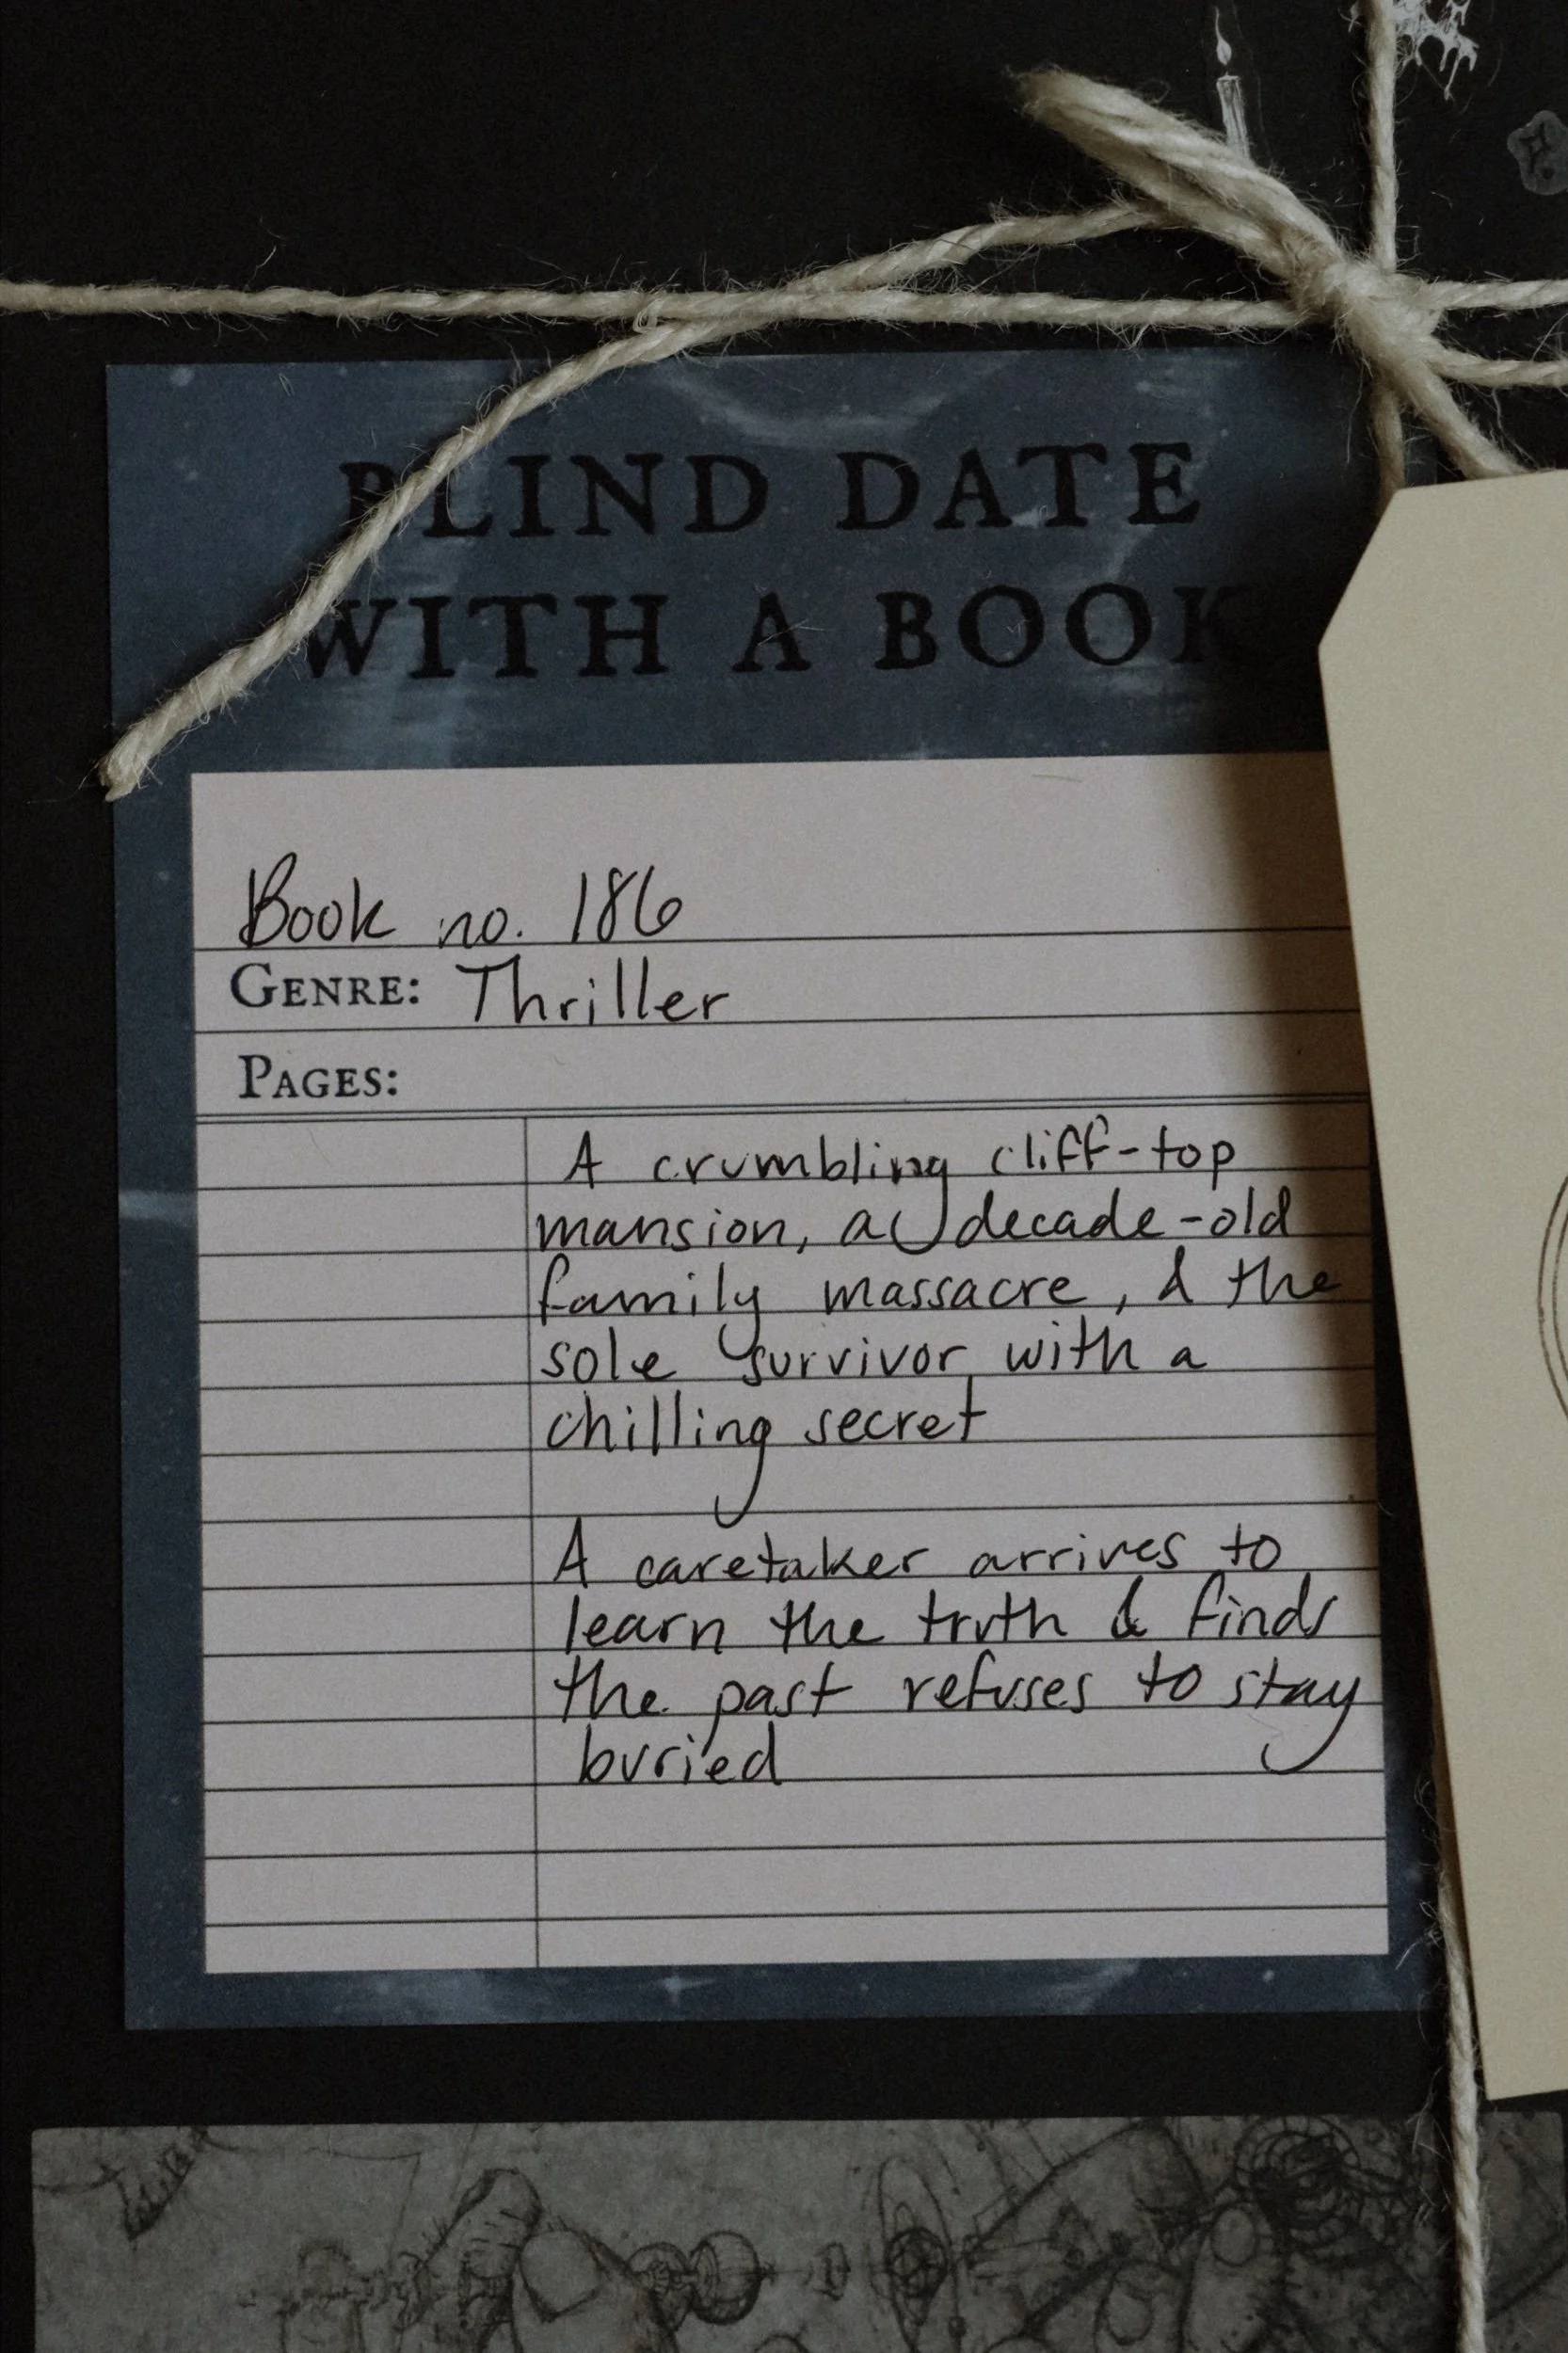 BLIND DATE
WITH A BOOK
Book no. 186
GENRE: Thriller
PAGES:
A crumbling cliff-top
mansion, a decade-old
family massacre, & the
sole survivor with a
chilling secret
A caretaker arrives to
learn the truth & finds
the past refuses to stay
buried